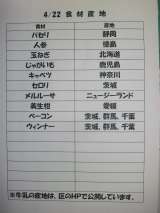 4/22 食材産地
食材 産地
パセリ 静岡
人参 徳島
玉ねぎ 北海道
じゃがいも 鹿児島
キャベツ 神奈川
セロリ 茨城
メルルーサ ニュージーランド
美生柑 愛媛
ベーコン 茨城, 群馬, 千葉
ウィンナー 茨城, 群馬, 千葉
※牛乳の産地は、区のHPで公開しています。